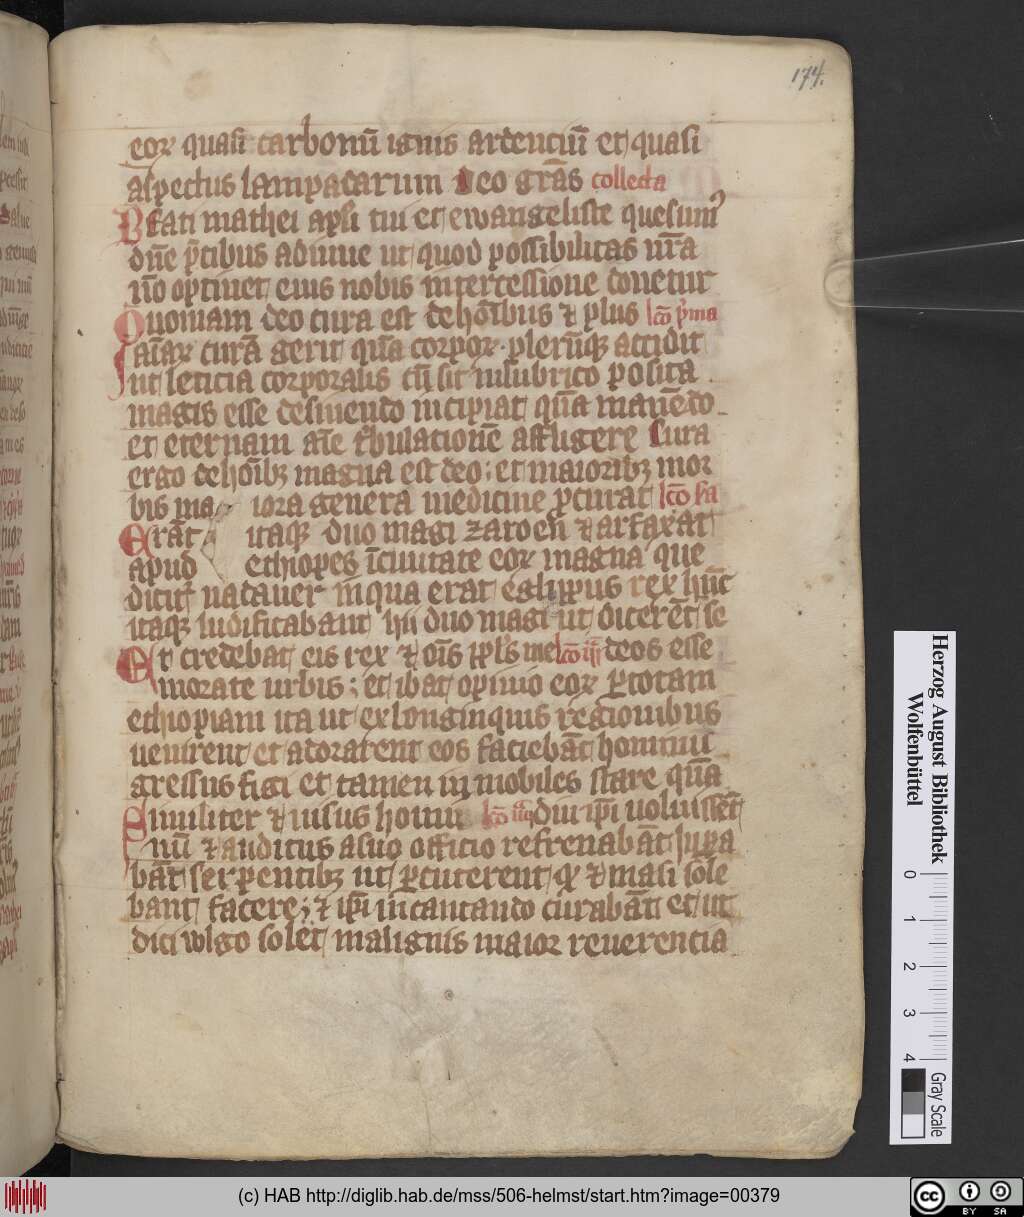 174.
eoꝝ quasi carbonū ignis ardenciū et quasi
aspectus lampadarum Deo gr̄as collecta
Beati mathei apl̄i tui et ewangeliste quesumꝰ
dn̄e p̄cibus adiuue ut quod possibilitas nr̄a
nō optinet eius nobis intercessione donetur
Quoniam deo cura est de hoībus ⁊ plus lcō p̄ma
aīaꝝ curā gerit quā corpoꝝ plerūqꝫ accidit
ut leticia corporalis cū sit in lubrico posita
magis esse desinendo incipiat quā manēdo
et eternam aīe tribulationē affligere Cura
ergo de hoībꝫ magna est deo; et maioribꝫ mor
bis ma iora genera medicine ꝓcurat lcō ßa
Erāt itaqꝫ duo magi zaroen ⁊ arfaxat
apud ethiopes ī ciuitate eoꝝ magna que
dicit᷑ nadauer in qua erat eglippus rex hūc
itaqꝫ ludificabant hii duo magi ut dicerēt se
Et credebat eis rex ⁊ oīs ppl̄s me lcō iii deos esse
morate urbis; et ibat opinio eoꝝ ꝑ totam
ethiopiam ita ut ex longinquis regionibus
uenirent et adorarent eos faciebāt hominū
gressus figi et tamen inmobiles stare quā
Similiter ⁊ uisus homi lcō iiii diu ipi uoluissēt
nū ⁊ auditus a suo officio refrenabāt īꝑa
bāt serpentibꝫ ut ꝑcuterent qꝫ ⁊ marsi sole
bant facere; ⁊ ipi incantando curabāt et ut
dici wlgo solet malignis maior reuerencia
Herzog August Bibliothek
Wolfenbüttel
0 1 2 3 4
Gray Scale
(c) HAB http://diglib.hab.de/mss/506-helmst/start.htm?image=00379
cc BY SA